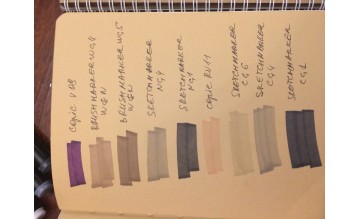 COPIC V 09
BRUSHMARKER WG4
W&N
BRUSHMARKER WG5
W&N
SKETCHMARKER
NG4
SKETCHMARKER
NG1
COPIC RV11
SKETCHMARKER
CG6
SKETCHMARKER
CG4
SKETCHMARKER
CG2